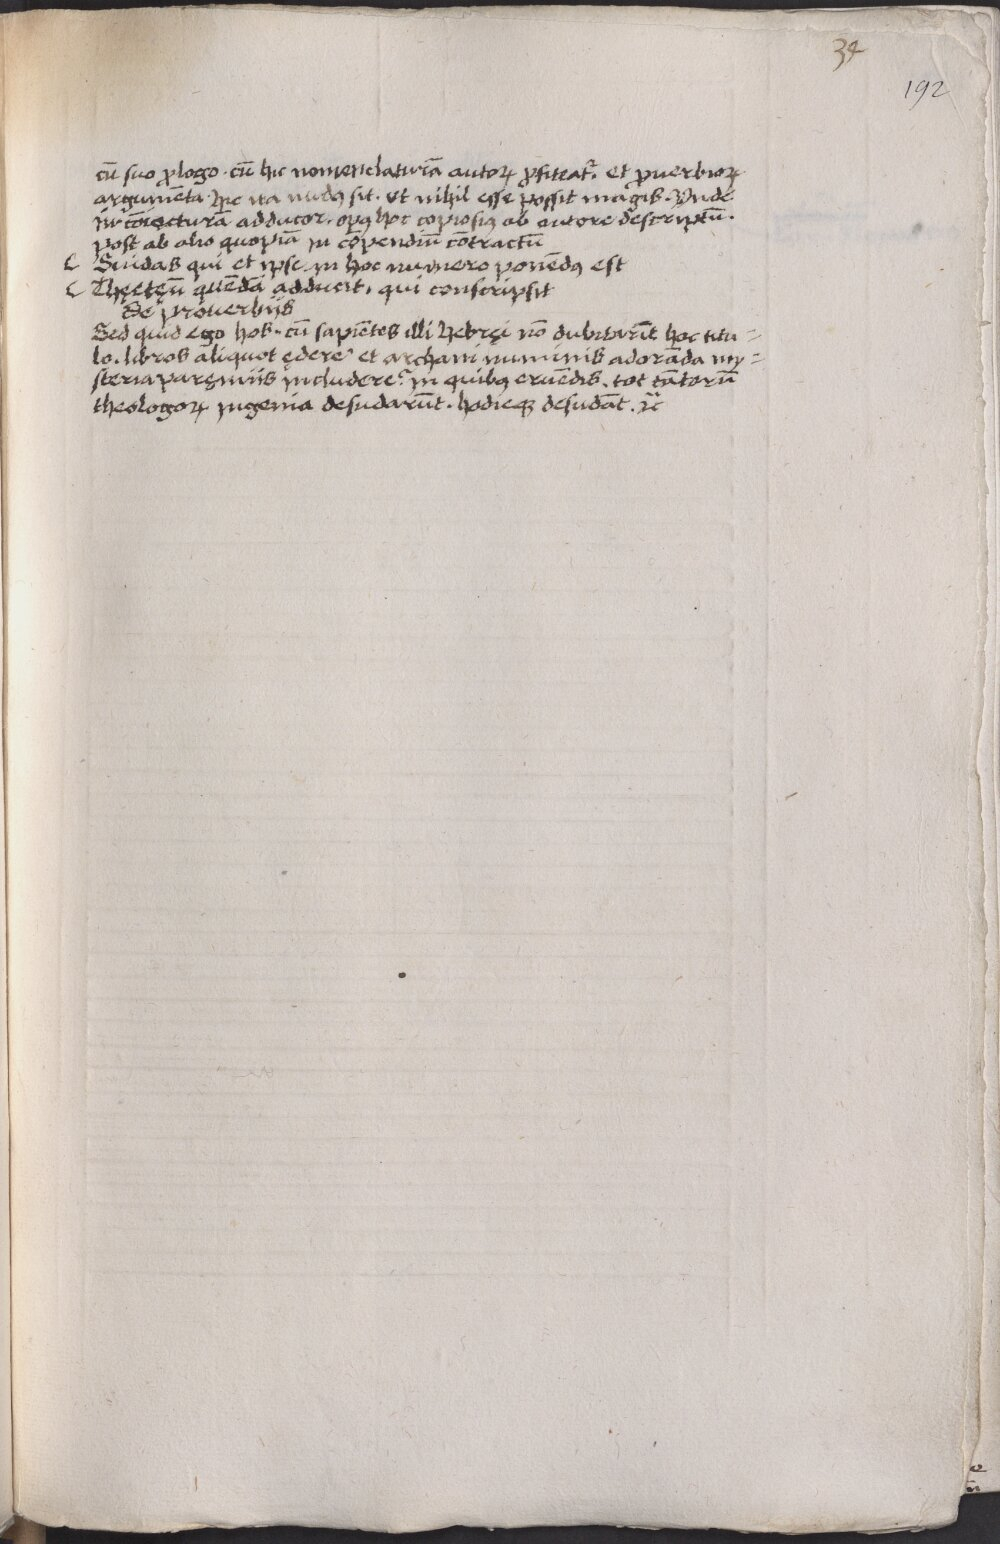 34
192
cū suo ꝓlogo · cū hic nomenclaturā autoꝝ ꝓfiteat᷑. et ꝓuerbioꝝ
argumēta. hic ita nudꝰ sit. ut nihil esse possit magis. Vnde
in cōiecturā adducor. opꝰ hoc copiosiꝰ ab autore descriptū.
post ab alio quopiā in cōpendiū cōtractū
Suidas qui et ipse in hoc numero ponēdꝰ est
Theętęū quēdā adducit, qui conscripsit
De prouerbijs
Sed quid ego hos. cū sapiētes illi Hebręi nō dubitarūt hoc titu=
lo. libros aliquot ędere et archam numinis adorāda my=
steria paręmijs includere. in quibꝰ eruēdis. tot tātorū
theologoꝝ ingenia desudarūt. hodieqꝫ desudāt. ⁊c̃